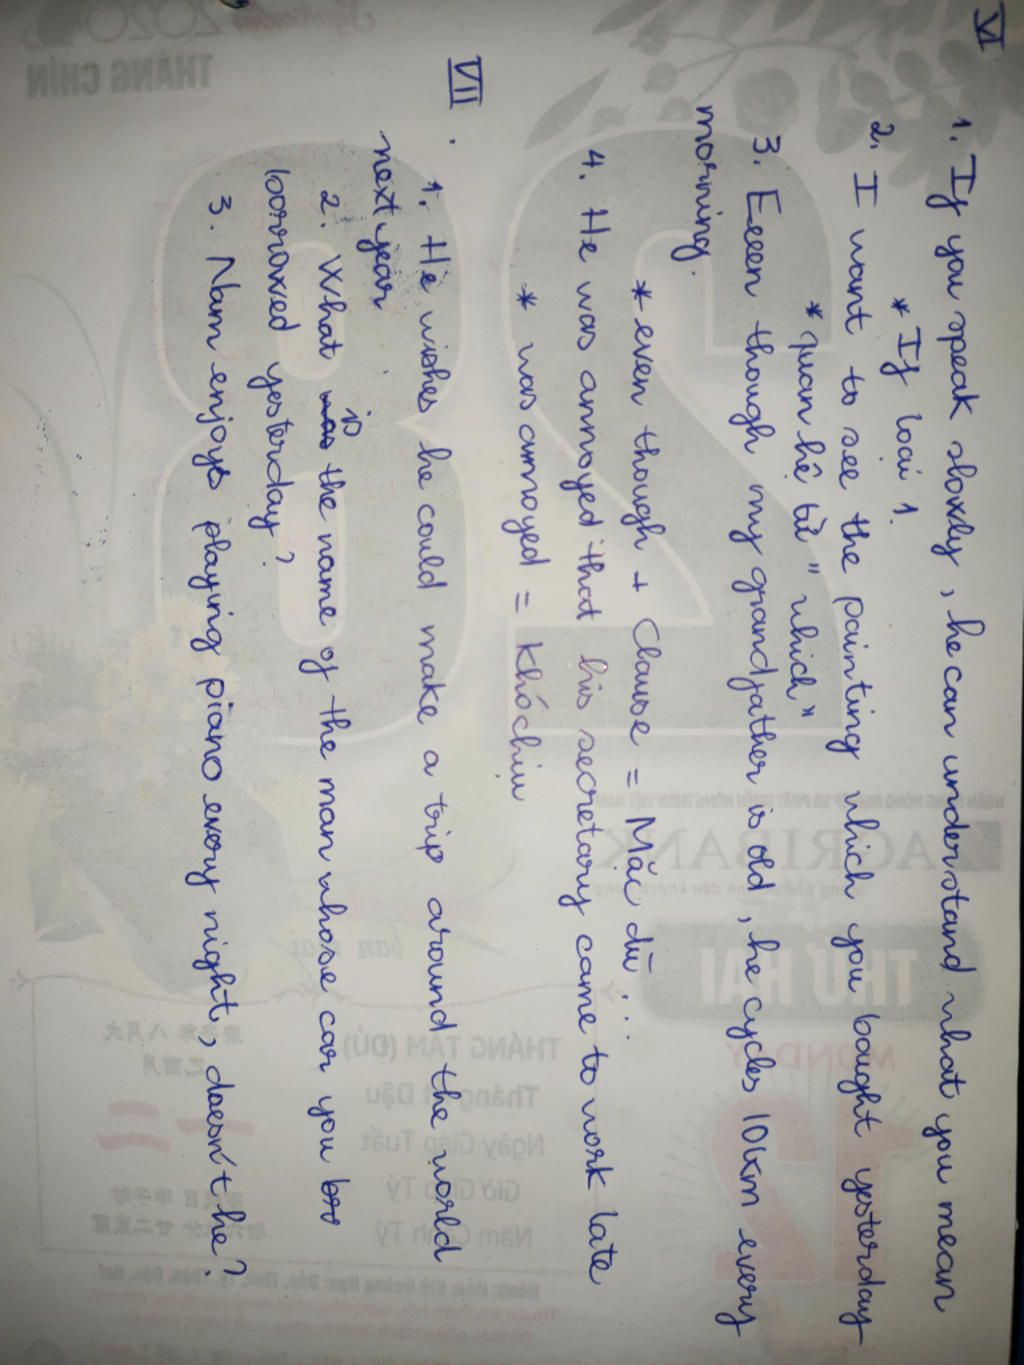 VI
1. If you speak slowly, he can understand what you mean
* If loại 1.
2. I want to see the painting which you bought yesterday
* quan hệ từ "which"
3. Eeen though my grandfather is old, he cycles 10km every
morning.
* even though + Clause = Mặc dù...
4. He was annoyed that his secretary came to work late
* was annoyed = khó chịu
VII.
1. He wishes he could make a trip around the world
next year
2. What was is the name of the man whose car you bro
borrowed yesterday?
3. Nam enjoys playing piano every night, doesn't he?
September 2020
THÁNG CHÍN
28
NGÂN HÀNG NÔNG NGHIỆP VÀ PHÁT TRIỂN NÔNG THÔN VIỆT NAM
AGRIBANK
THỨ HAI
MONDAY
12
THÁNG TÁM (ĐỦ)
Tháng Ất Dậu
Ngày Giáp Tuất
Giờ Giáp Tý
Năm Canh Tý